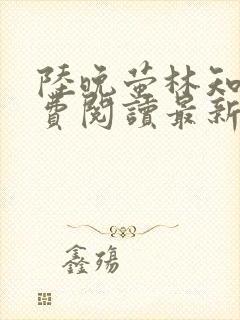 陸晚螢林知
費閱讀最新
鑫殤